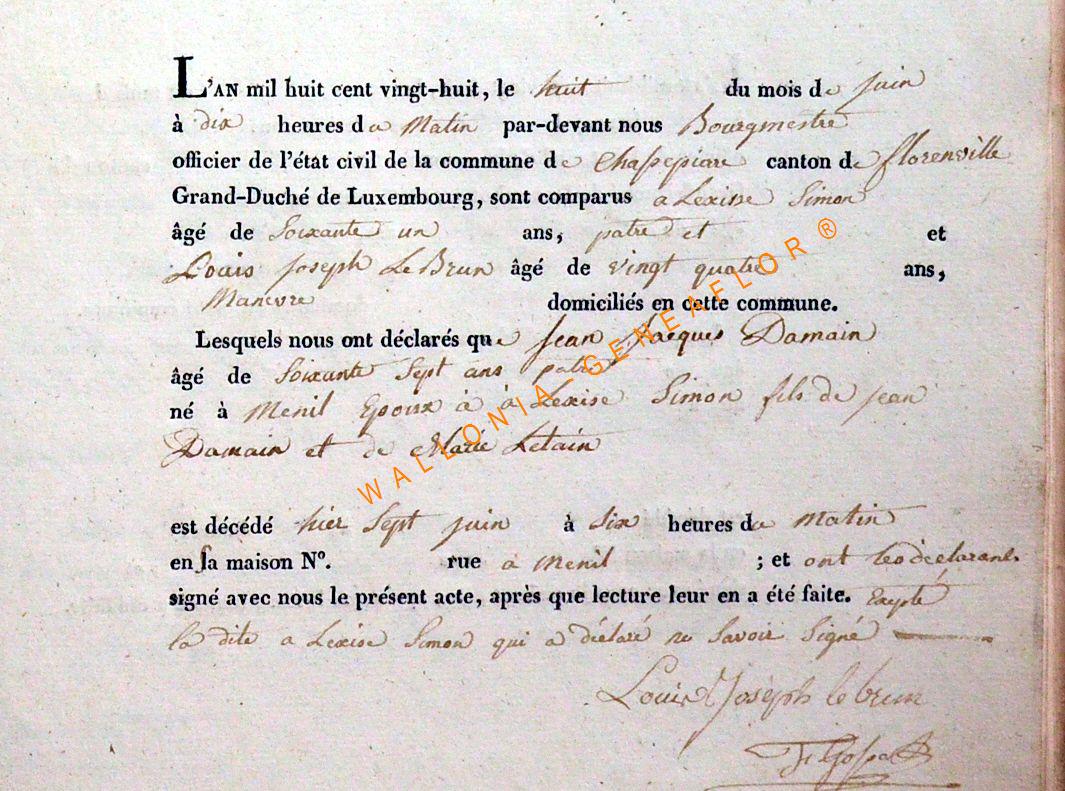 L'AN mil huit cent vingt-huit, le huit du mois de juin
à dix heures du Matin par-devant nous Bourgmestre
officier de l'état civil de la commune de Chassepiare canton de florenville
Grand-Duché de Luxembourg, sont comparus a Lexise Simon
âgé de Soixante un ans, patre et et
Louis joseph Le Brun âgé de vingt quatre ans,
Manevre domiciliés en cette commune.
Lesquels nous ont déclarés que Jean Jacques Damain
âgé de Soixante Sept ans patre
né à Menil Epoux à à Lexise Simon fils de jean
Damain et de Marie Letain
est décédé hier Sept juin à Six heures du Matin
en sa maison N°. rue à Menil ; et ont les déclarans
signé avec nous le présent acte, après que lecture leur en a été faite. Exepté
la dite a Lexise Simon qui a déclaré ne Savoir Signé
Louis Joseph le brun
WALLONIA-GENEAFLOR ®